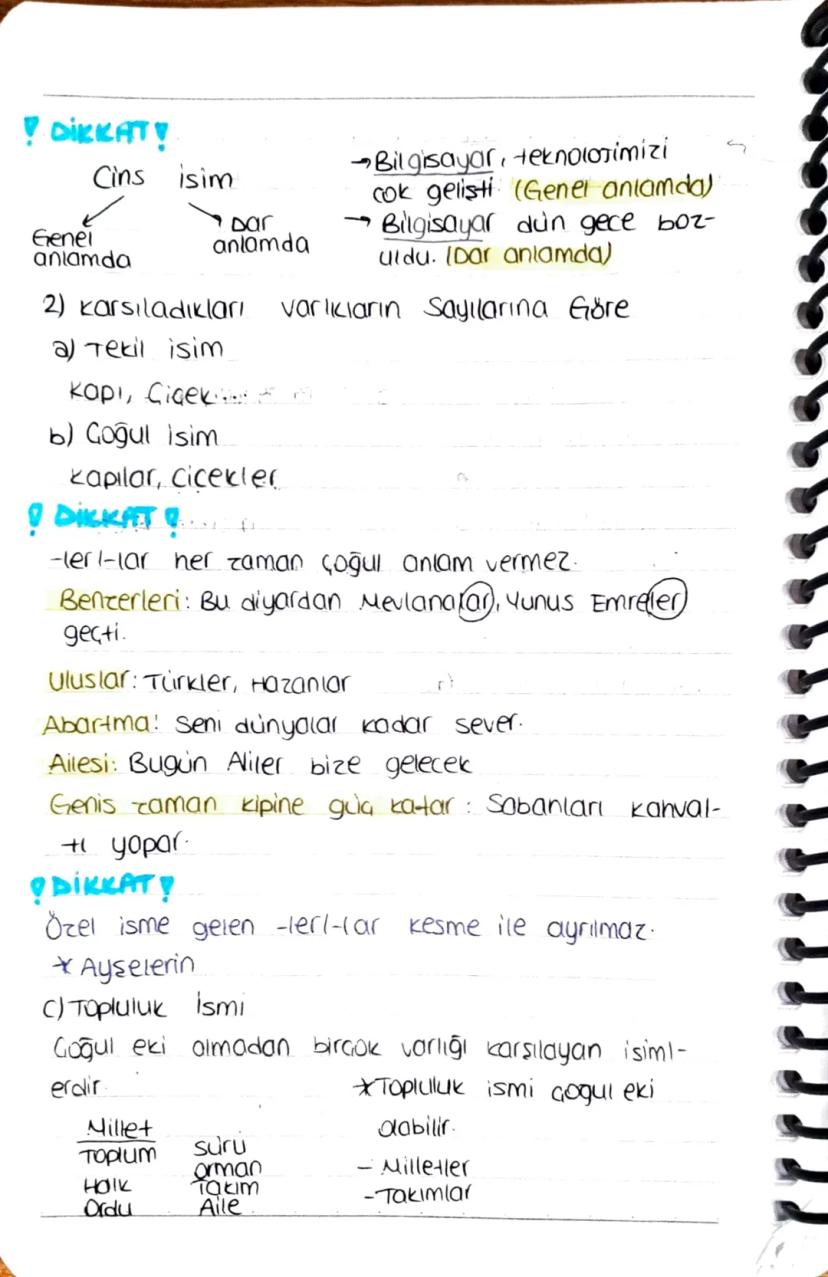 ! DİKKAT !
Cins isim
Genel
anlamda
Dar
anlamda
→ Bilgisayar, teknolojimizi
çok gelişti. (Genel anlamda)
→ Bilgisayar dün gece boz-
uldu. (Dar anlamda)
2) Karşıladıkları varlıkların Sayılarına Göre
a) Tekil isim
Kapı, Çiçek...
b) Çoğul isim
Kapılar, Çiçekler
! DİKKAT !
-ler/-lar her zaman çoğul anlam vermez.
Benzerleri: Bu diyardan Mevlanalar, Yunus Emreler
geçti.
Uluslar: Türkler, Hazarlar
Abartma: Seni dünyalar kadar sever.
Ailesi: Bugün Aliler bize gelecek
Geniş zaman kipine güç katar: Sabahları kahval-
tı yapar.
! DİKKAT !
Özel isme gelen -ler/-lar kesme ile ayrılmaz.
* Ayşelerin
C) Topluluk İsmi
Çoğul eki almadan birçok varlığı karşılayan isiml-
erdir.
* Topluluk ismi çoğul eki
alabilir.
- Milletler
- Takımlar
Millet
Toplum
Halk
Ordu
sürü
orman
Takım
Aile